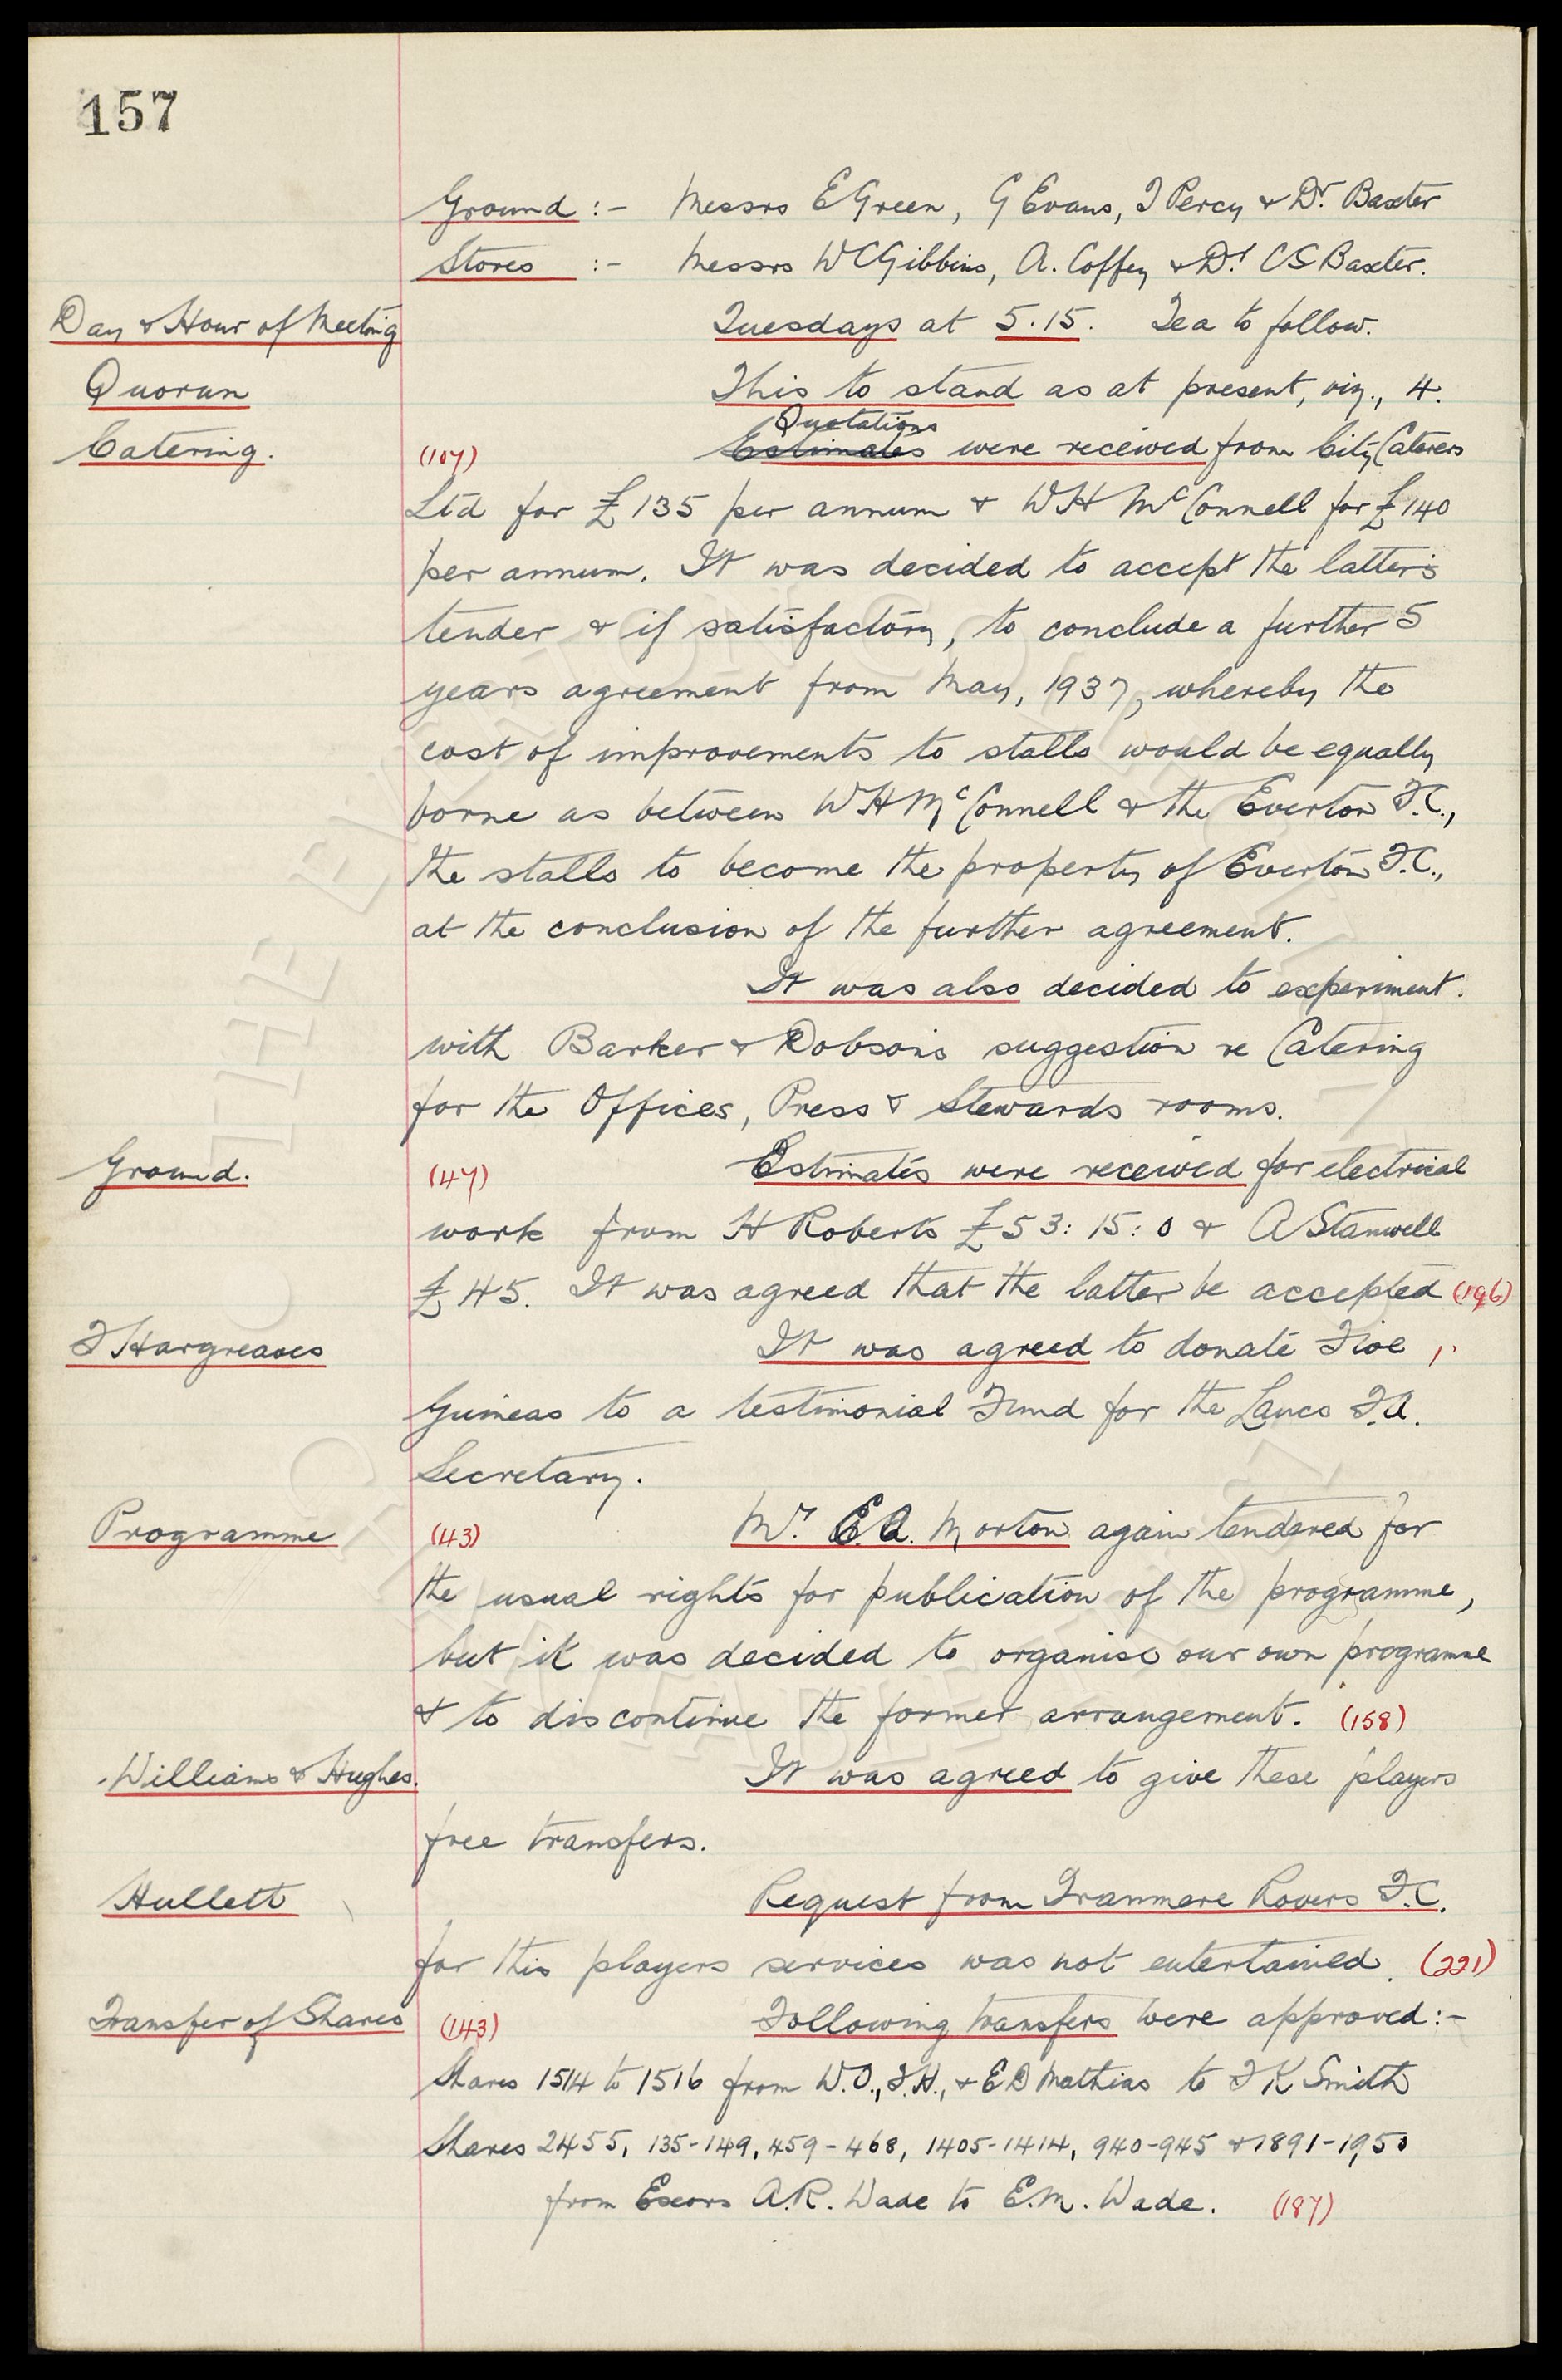 157
Ground :- Messrs E Green, G Evans, T Percy & Dr. Baxter
Stores :- Messrs W C Gibbins, A. Coffey & Dr. C S Baxter.
Day & Hour of Meeting Tuesdays at 5.15. Tea to follow.
Quorum This to stand as at present, viz., 4.
Quotations
Catering. (107) Estimates were received from City Caterers
Ltd for £135 per annum & W H McConnell for £140
per annum. It was decided to accept the latter's
tender & if satisfactory, to conclude a further 5
years agreement from May, 1937, whereby the
cost of improvements to stalls would be equally
borne as between W H McConnell & the Everton F.C.,
the stalls to become the property of Everton F.C.,
at the conclusion of the further agreement.
It was also decided to experiment.
with Barker & Dobson's suggestion re Catering
for the Offices, Press & Stewards rooms.
Ground. (47) Estimates were received for electrical
work from H Roberts £53:15:0 & A Stanwell
£45. It was agreed that the latter be accepted (196)
F Hargreaves It was agreed to donate Five
Guineas to a testimonial Fund for the Lancs F.A.
Secretary.
Programme (43) Mr. E.A. Morton again tendered for
the usual rights for publication of the programme,
but it was decided to organise our own programme
& to discontinue the former arrangement. (158)
Williams & Hughes. It was agreed to give these players
free transfers.
Hullett Request from Tranmere Rovers F.C.
for this players services was not entertained. (221)
Transfer of Shares (143) Following transfers were approved:-
Shares 1514 to 1516 from W.O., F.H., & E D Mathias to F K Smith
Shares 2455, 135-149, 459-468, 1405-1414, 940-945 & 1891-1950
from Exors A.R. Wade to E.M. Wade. (187)